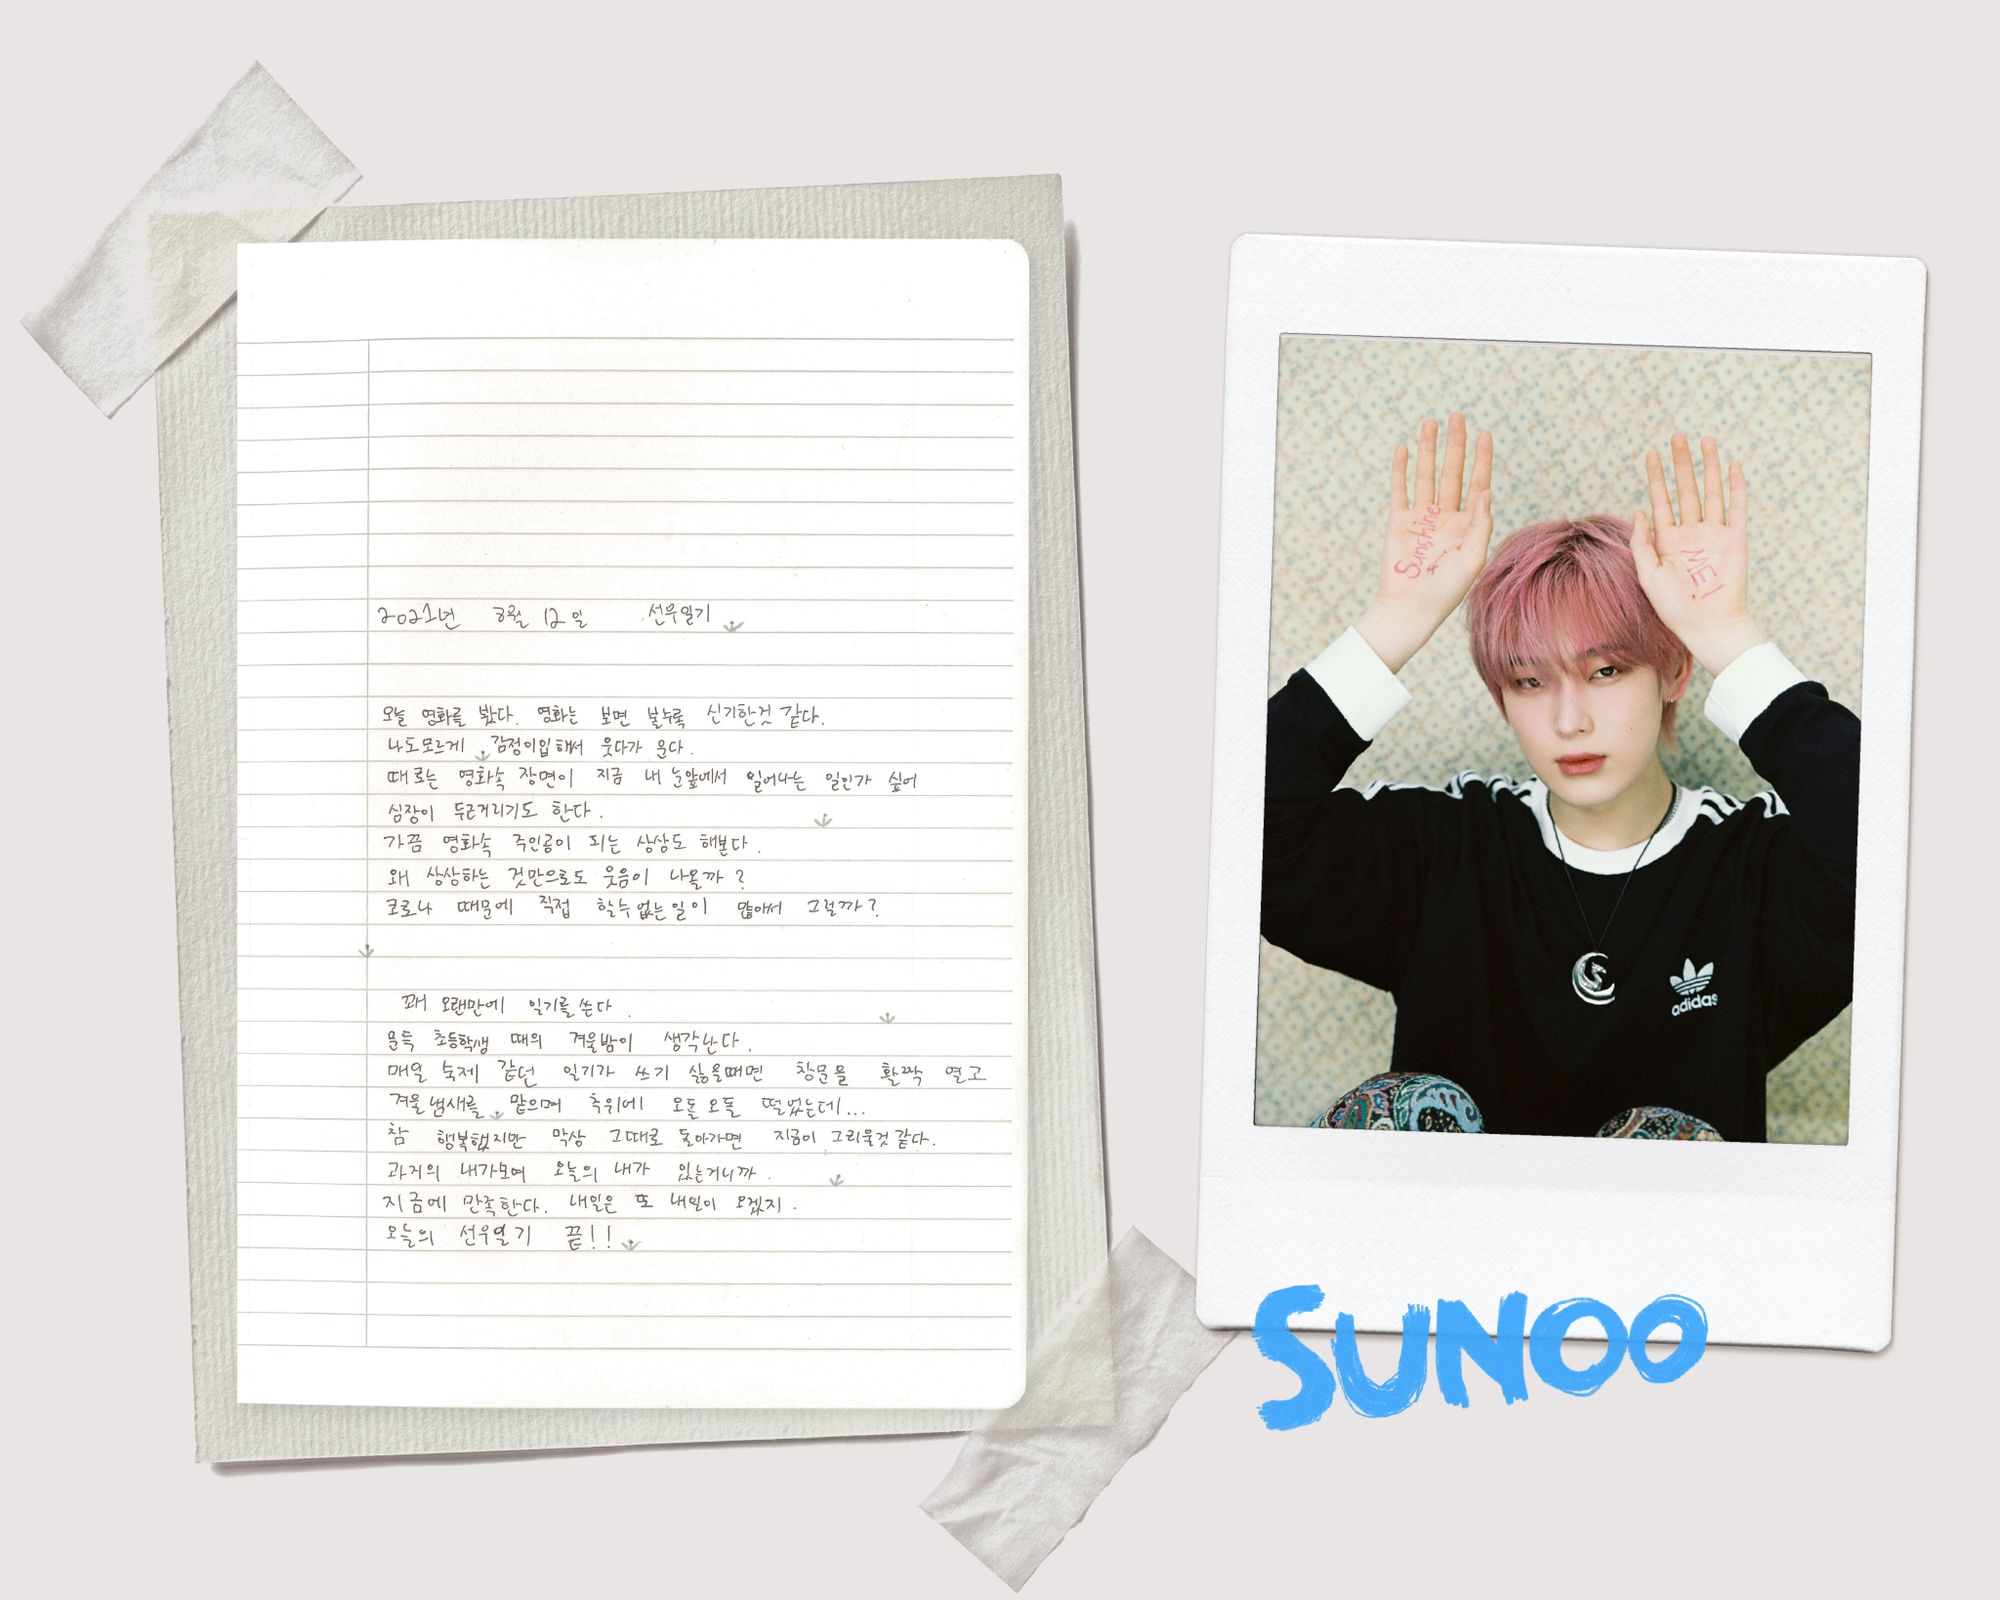 2021년 3월 12일 선우일기
오늘 영화를 봤다. 영화는 보면 볼수록 신기한것 같다.
나도모르게 감정이입해서 웃다가 운다.
때로는 영화속 장면이 지금 내 눈앞에서 일어나는 일인가 싶어
심장이 두근거리기도 한다.
가끔 영화속 주인공이 되는 상상도 해본다.
왜 상상하는 것만으로도 웃음이 나올까?
코로나 때문에 직접 할수없는일이 많아서 그럴까?
꽤 오랜만에 일기를쓴다.
문득 초등학생 때의 겨울밤이 생각난다.
매일 숙제 같던 일기가 쓰기 싫을때면 창문을 활짝 열고
겨울냄새를 맡으며 추위에 오돌오돌 떨었는데...
참 행복했지만 막상 그때로 돌아가면 지금이 그리울것같다.
과거의 내가모여 오늘의 내가 있는거니까.
지금에 만족한다. 내일은 또 내일이 오겠지.
오늘의 선우일기 끝!!
Sunshine
ME!
adidas
SUNOO